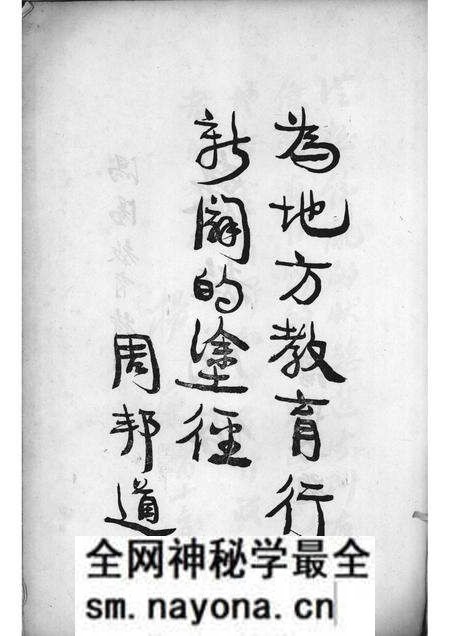 為地方教育行
新闢的塗徑
周邦道
全网神秘学最全
sm.nayona.cn